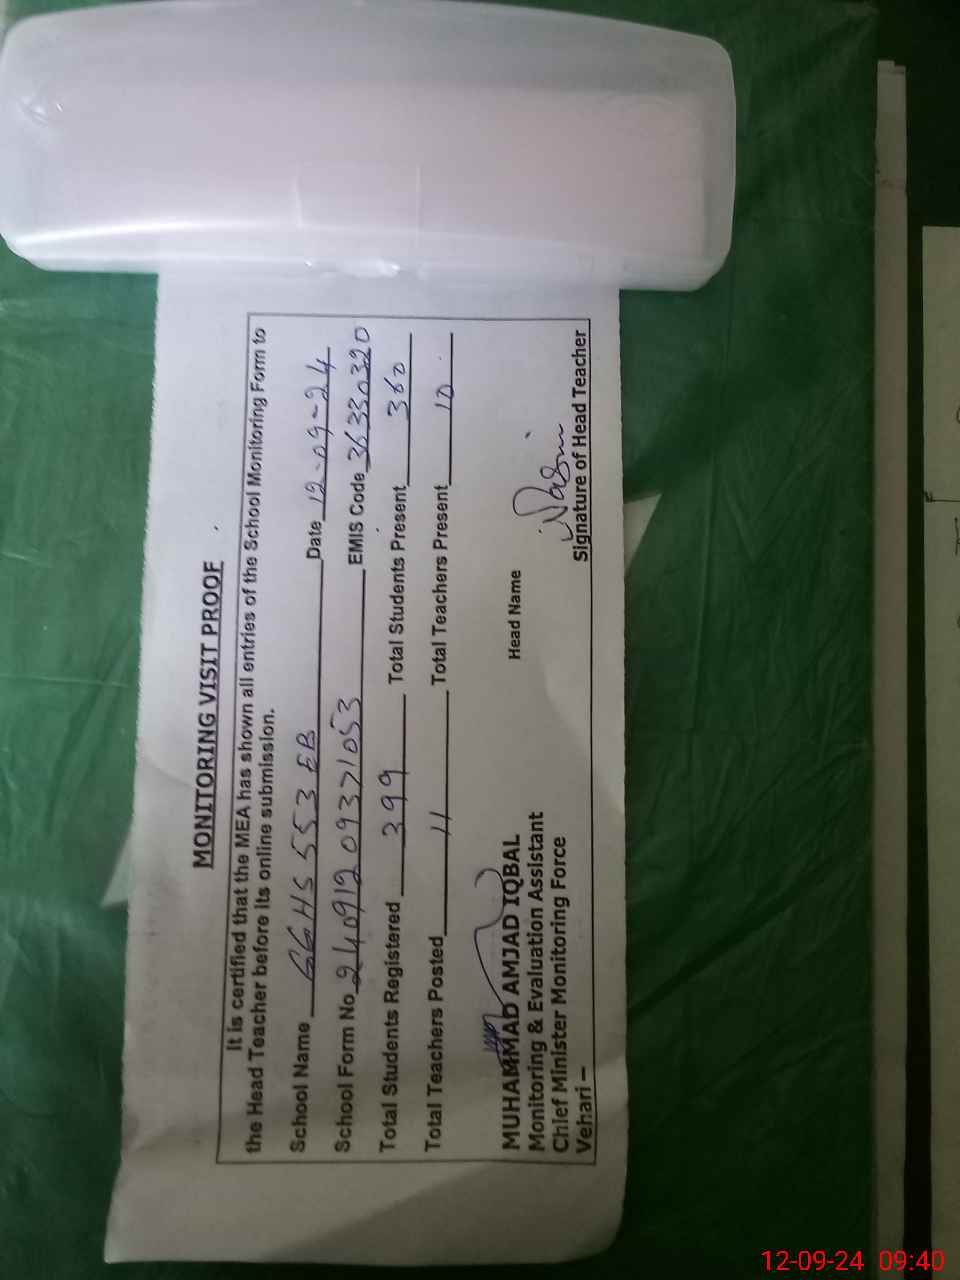 MONITORING VISIT PROOF
It is certified that the MEA has shown all entries of the School Monitoring Form to
the Head Teacher before its online submission.
School Name GGHS 553 EB Date 12-09-24
School Form No 240912 09371053 EMIS Code 36330320
Total Students Registered 399 Total Students Present 360
Total Teachers Posted 11 Total Teachers Present 10
MUHAMMAD AMJAD IQBAL Head Name
Monitoring & Evaluation Assistant
Chief Minister Monitoring Force
Vehari – Signature of Head Teacher
12-09-24 09:40